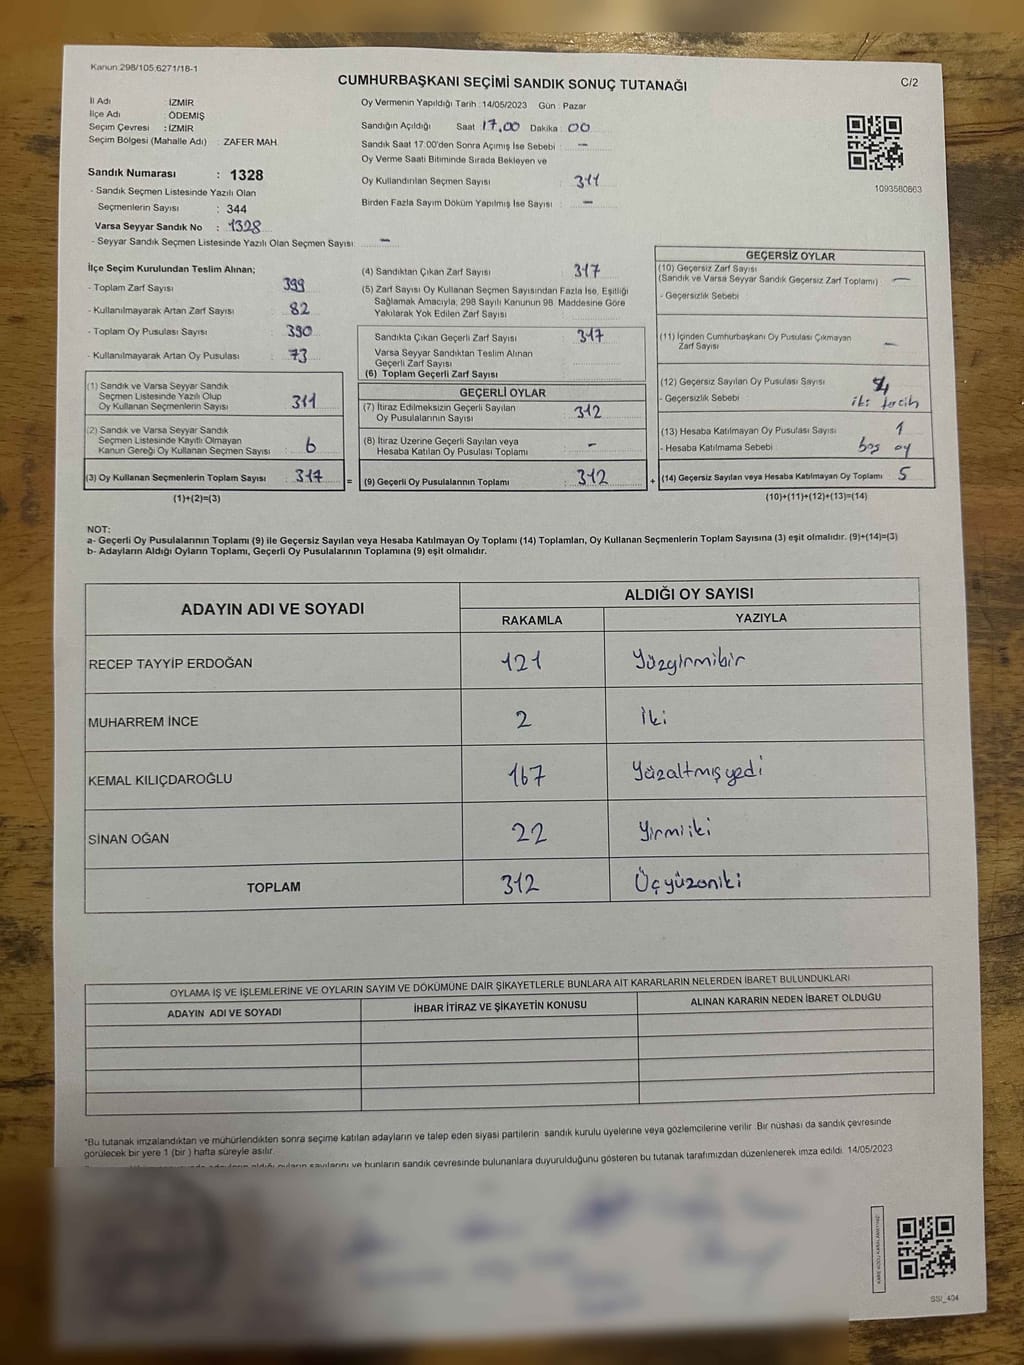 Kanun 298/105 6271/18-1
CUMHURBAŞKANI SEÇİMİ SANDIK SONUÇ TUTANAĞI
C/2
İl Adı : İZMİR
İlçe Adı : ÖDEMİŞ
Seçim Çevresi : İZMİR
Seçim Bölgesi (Mahalle Adı) : ZAFER MAH.
Sandık Numarası : 1328
- Sandık Seçmen Listesinde Yazılı Olan
Seçmenlerin Sayısı : 344
Varsa Seyyar Sandık No : 1328
- Seyyar Sandık Seçmen Listesinde Yazılı Olan Seçmen Sayısı : –
Oy Vermenin Yapıldığı Tarih : 14/05/2023 Gün : Pazar
Sandığın Açıldığı Saat 17.00 Dakika : 00
Sandık Saat 17:00'den Sonra Açımış İse Sebebi : –
Oy Verme Saati Bitiminde Sırada Bekleyen ve
Oy Kullandırılan Seçmen Sayısı : 311
Birden Fazla Sayım Döküm Yapılmış İse Sayısı : –
1093580863
İlçe Seçim Kurulundan Teslim Alınan;
- Toplam Zarf Sayısı : 399
- Kullanılmayarak Artan Zarf Sayısı : 82
- Toplam Oy Pusulası Sayısı : 390
- Kullanılmayarak Artan Oy Pusulası : 73
(1) Sandık ve Varsa Seyyar Sandık
Seçmen Listesinde Yazılı Olup
Oy Kullanan Seçmenlerin Sayısı : 311
(2) Sandık ve Varsa Seyyar Sandık
Seçmen Listesinde Kayıtlı Olmayan
Kanun Gereği Oy Kullanan Seçmen Sayısı : 6
(3) Oy Kullanan Seçmenlerin Toplam Sayısı : 317
(1)+(2)=(3)
(4) Sandıktan Çıkan Zarf Sayısı : 317
(5) Zarf Sayısı Oy Kullanan Seçmen Sayısından Fazla İse, Eşitliği
Sağlamak Amacıyla; 298 Sayılı Kanunun 98. Maddesine Göre
Yakılarak Yok Edilen Zarf Sayısı :
Sandıkta Çıkan Geçerli Zarf Sayısı : 317
Varsa Seyyar Sandıktan Teslim Alınan
Geçerli Zarf Sayısı
(6) Toplam Geçerli Zarf Sayısı :
GEÇERLİ OYLAR
(7) İtiraz Edilmeksizin Geçerli Sayılan
Oy Pusulalarının Sayısı : 312
(8) İtiraz Üzerine Geçerli Sayılan veya
Hesaba Katılan Oy Pusulası Toplamı : –
= (9) Geçerli Oy Pusulalarının Toplamı : 312
GEÇERSİZ OYLAR
(10) Geçersiz Zarf Sayısı
(Sandık ve Varsa Seyyar Sandık Geçersiz Zarf Toplamı) : –
- Geçersizlik Sebebi :
(11) İçinden Cumhurbaşkanı Oy Pusulası Çıkmayan
Zarf Sayısı : –
(12) Geçersiz Sayılan Oy Pusulası Sayısı : 4
- Geçersizlik Sebebi : iki tercih
(13) Hesaba Katılmayan Oy Pusulası Sayısı : 1
- Hesaba Katılmama Sebebi : boş oy
+ (14) Geçersiz Sayılan veya Hesaba Katılmayan Oy Toplamı : 5
(10)+(11)+(12)+(13)=(14)
NOT:
a- Geçerli Oy Pusulalarının Toplamı (9) ile Geçersiz Sayılan veya Hesaba Katılmayan Oy Toplamı (14) Toplamları, Oy Kullanan Seçmenlerin Toplam Sayısına (3) eşit olmalıdır. (9)+(14)=(3)
b- Adayların Aldığı Oyların Toplamı, Geçerli Oy Pusulalarının Toplamına (9) eşit olmalıdır.
ADAYIN ADI VE SOYADI
ALDIĞI OY SAYISI
RAKAMLA YAZIYLA
RECEP TAYYİP ERDOĞAN 121 Yüzyirmibir
MUHARREM İNCE 2 İki
KEMAL KILIÇDAROĞLU 167 Yüzaltmışyedi
SİNAN OĞAN 22 Yirmiiki
TOPLAM 312 Üçyüzoniki
OYLAMA İŞ VE İŞLEMLERİNE VE OYLARIN SAYIM VE DÖKÜMÜNE DAİR ŞİKAYETLERLE BUNLARA AİT KARARLARIN NELERDEN İBARET BULUNDUKLARI
ADAYIN ADI VE SOYADI İHBAR İTİRAZ VE ŞİKAYETİN KONUSU ALINAN KARARIN NEDEN İBARET OLDUĞU
*Bu tutanak imzalandıktan ve mühürlendikten sonra seçime katılan adayların ve talep eden siyasi partilerin sandık kurulu üyelerine veya gözlemcilerine verilir. Bir nüshası da sandık çevresinde
görülecek bir yere 1 (bir) hafta süreyle asılır.
aldığı oyların sayılarını ve bunların sandık çevresinde bulunanlara duyurulduğunu gösteren bu tutanak tarafımızdan düzenlenerek imza edildi. 14/05/2023
SSI_404